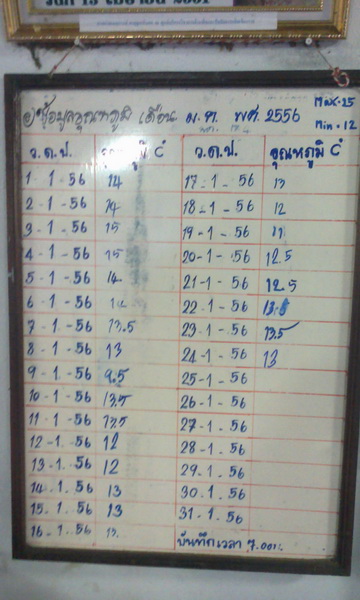 ข้อมูลอุณหภูมิ เดือน ม.ค. พศ. 2556
Max-25
Min-12
ว.ด.ป. อุณหภูมิ C° ว.ด.ป. อุณหภูมิ C°
1-1-56 14 17-1-56 13
2-1-56 14 18-1-56 12
3-1-56 15 19-1-56 11
4-1-56 15 20-1-56 12.5
5-1-56 14 21-1-56 12.5
6-1-56 22-1-56 13.5
7-1-56 13.5 23-1-56 13.5
8-1-56 13 24-1-56 13
9-1-56 9.5 25-1-56
10-1-56 13.5 26-1-56
11-1-56 13.5 27-1-56
12-1-56 12 28-1-56
13-1-56 12 29-1-56
14-1-56 13 30-1-56
15-1-56 13 31-1-56
16-1-56 13 บันทึกเวลา 7.00น.